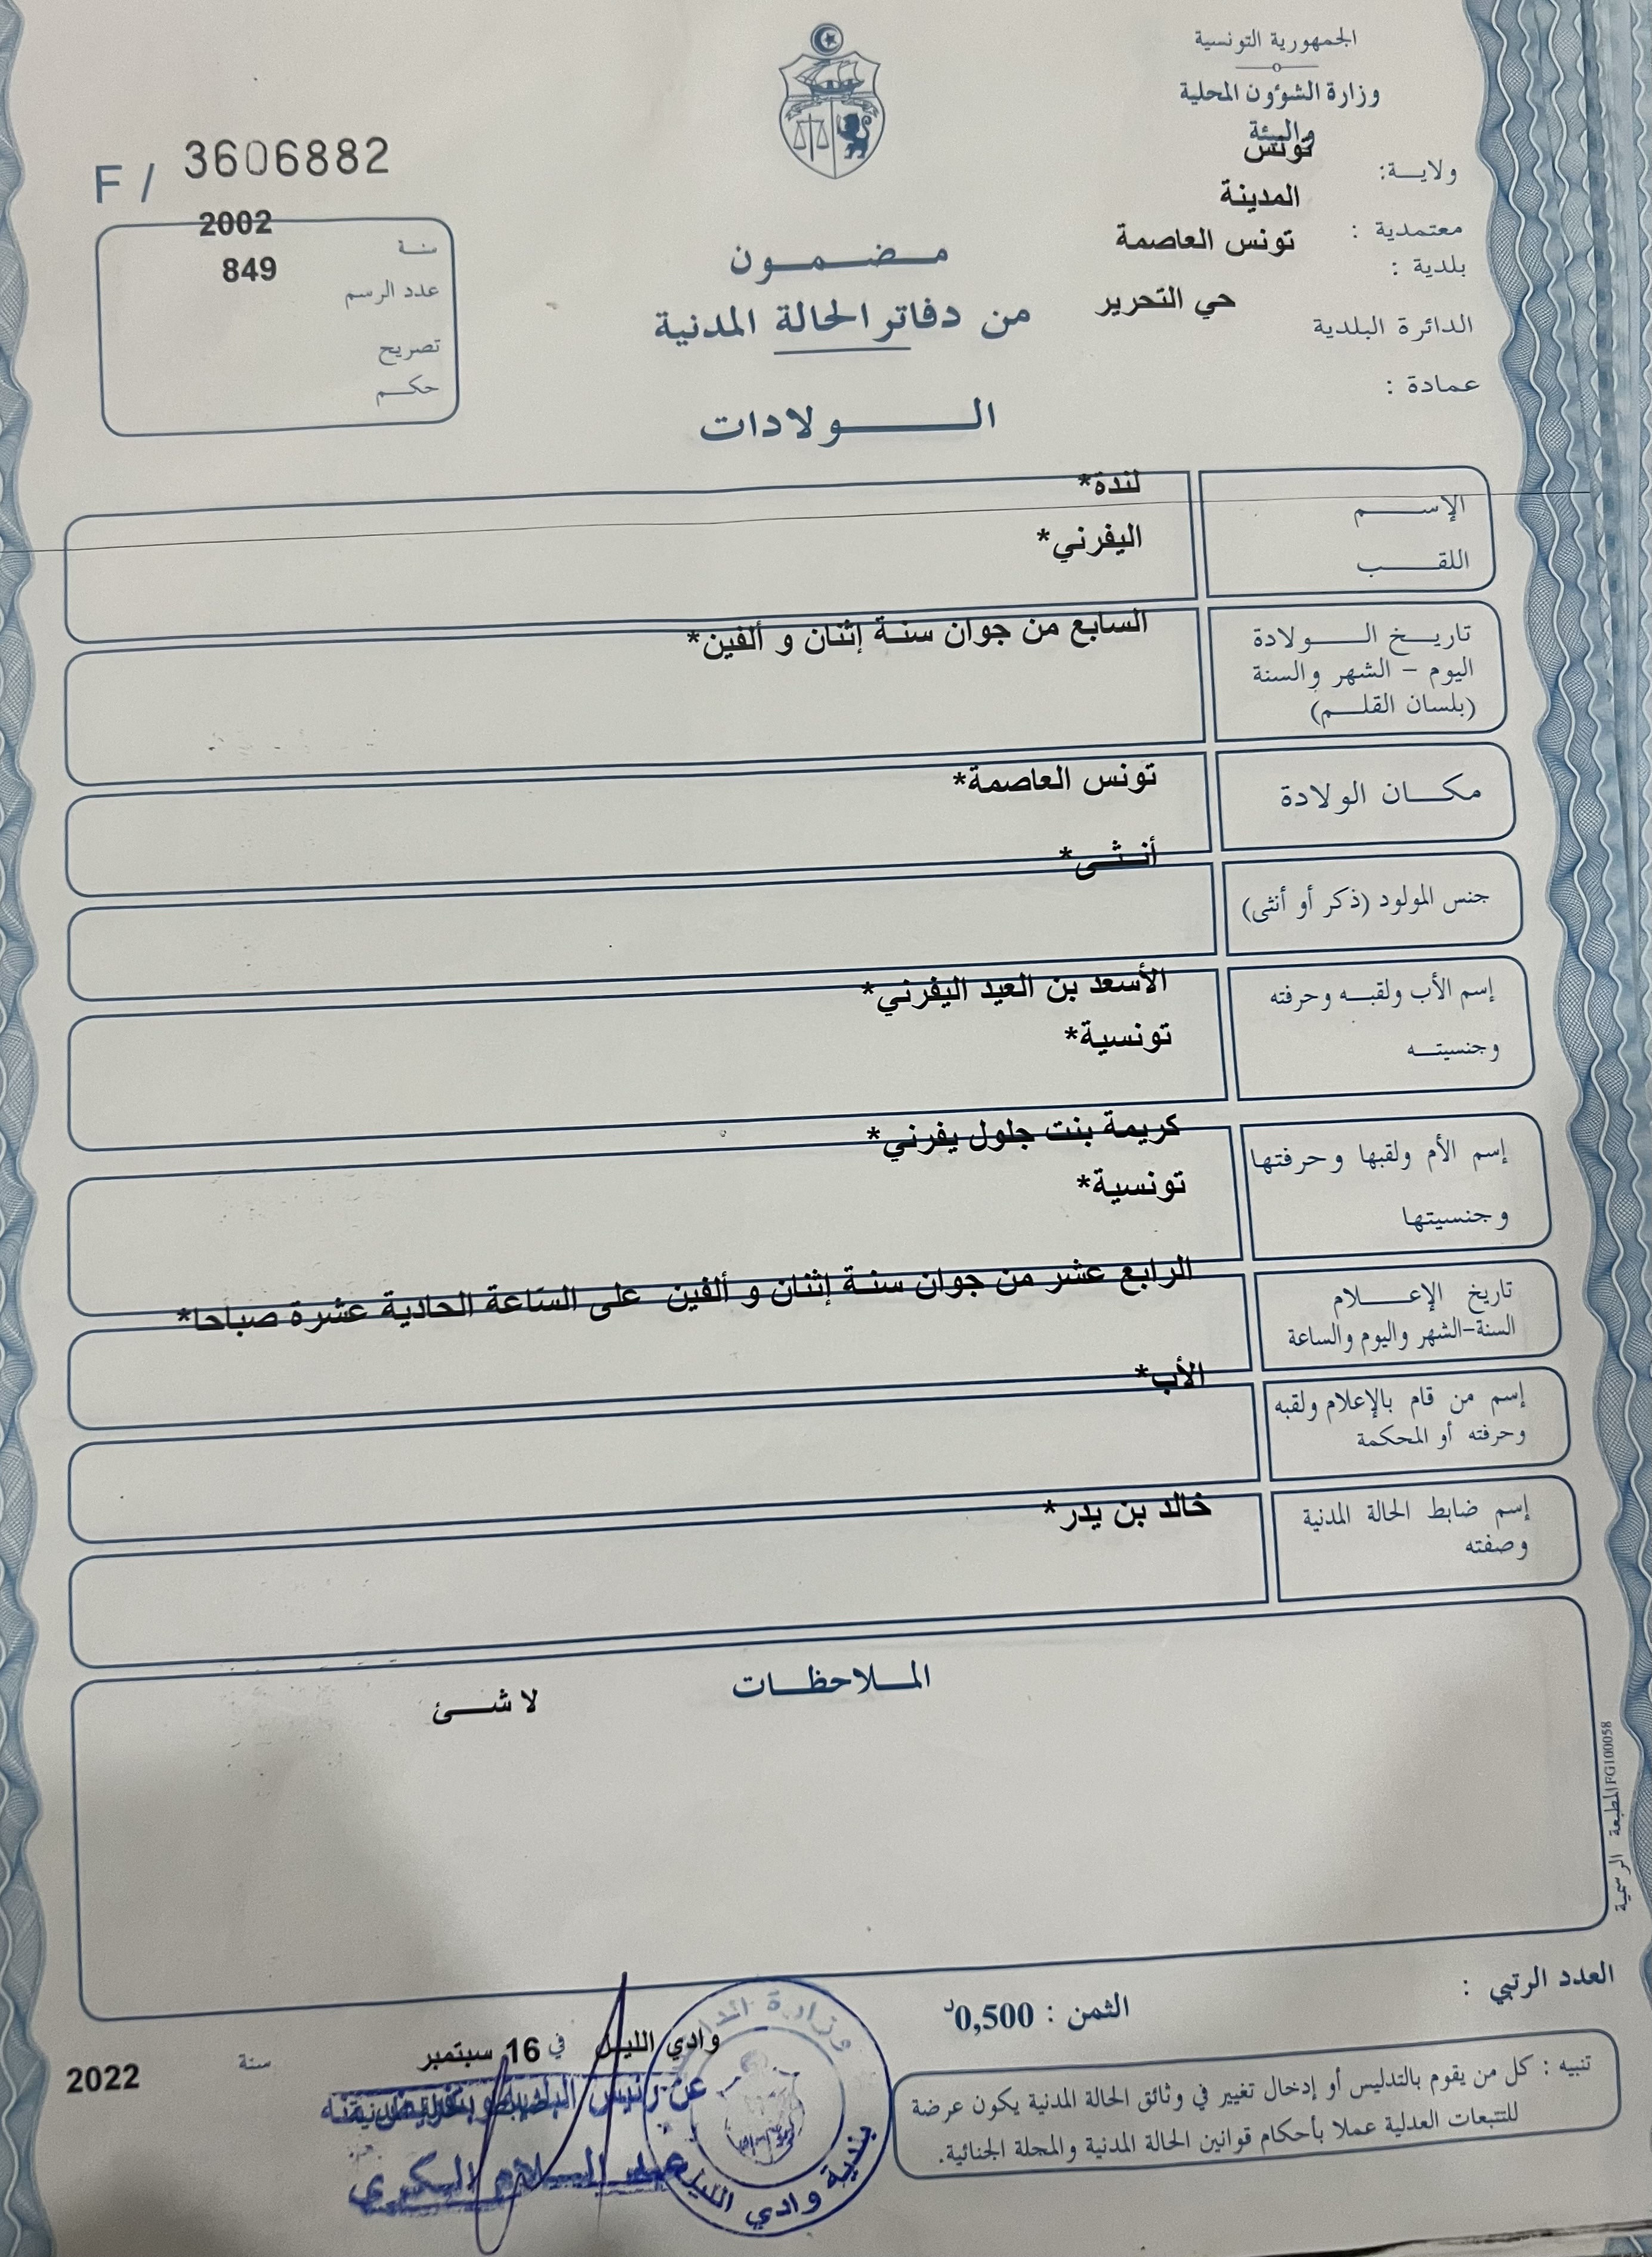 الجمهورية التونسية
وزارة الشؤون المحلية
والبيئة
ولايـة: تونس
معتمدية : المدينة
بلدية : تونس العاصمة
الدائرة البلدية حي التحرير
عمادة :
F / 3606882
سنة 2002
عدد الرسم 849
تصريح
حكم
مضمون
من دفاتر الحالة المدنية
الولادات
الإسم لندة*
اللقب اليفرني*
تاريخ الولادة السابع من جوان سنة إثنان و ألفين*
اليوم - الشهر والسنة
(بلسان القلم)
مكان الولادة تونس العاصمة*
جنس المولود (ذكر أو أنثى) أنثى*
إسم الأب ولقبه وحرفته الأسعد بن العيد اليفرني*
وجنسيته تونسية*
إسم الأم ولقبها وحرفتها كريمة بنت جلول يفرني*
وجنسيتها تونسية*
تاريخ الإعلام الرابع عشر من جوان سنة إثنان و ألفين على الساعة الحادية عشرة صباحا*
السنة-الشهر واليوم والساعة
إسم من قام بالإعلام ولقبه الأب*
وحرفته أو المحكمة
إسم ضابط الحالة المدنية خالد بن يدر*
وصفته
الملاحظات
لا شئ
المطبعة الرسمية FG100058
العدد الرتبي :
الثمن : 0,500د
وادي الليل في 16 سبتمبر سنة 2022
عن رئيس البلدية
عبد السلام البكري
وزارة الد
بلدية وادي الليل
تنبيه : كل من يقوم بالتدليس أو إدخال تغيير في وثائق الحالة المدنية يكون عرضة
للتتبعات العدلية عملا بأحكام قوانين الحالة المدنية والمجلة الجنائية.